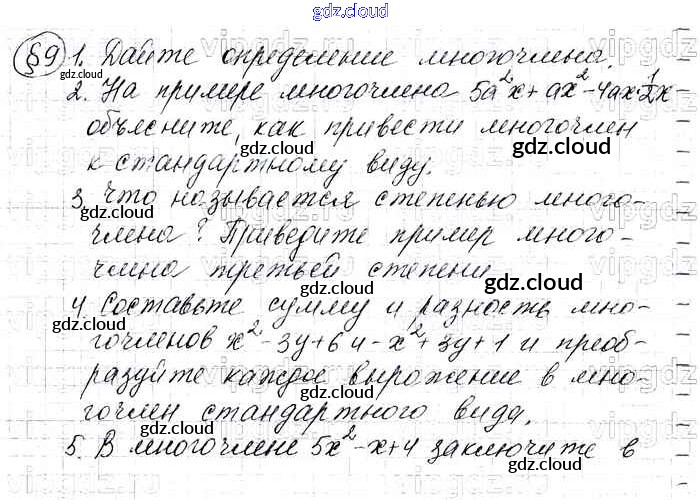 gdz.cloud
§9 1. Дайте определение многочлена.
2. На примере многочлена 5a²x + ax² - 4ax · 1/2x
объясните, как привести многочлен
к стандартному виду.
3. Что называется степенью много-
члена? Приведите пример много-
члена третьей степени
4. Составьте сумму и разность мно-
гочленов x² - 3y + 6 и - x² + 3y + 1 и преоб-
разуйте каждое выражение в мно-
гочлен стандартного вида.
5. В многочлене 5x² - x + 4 заключите в